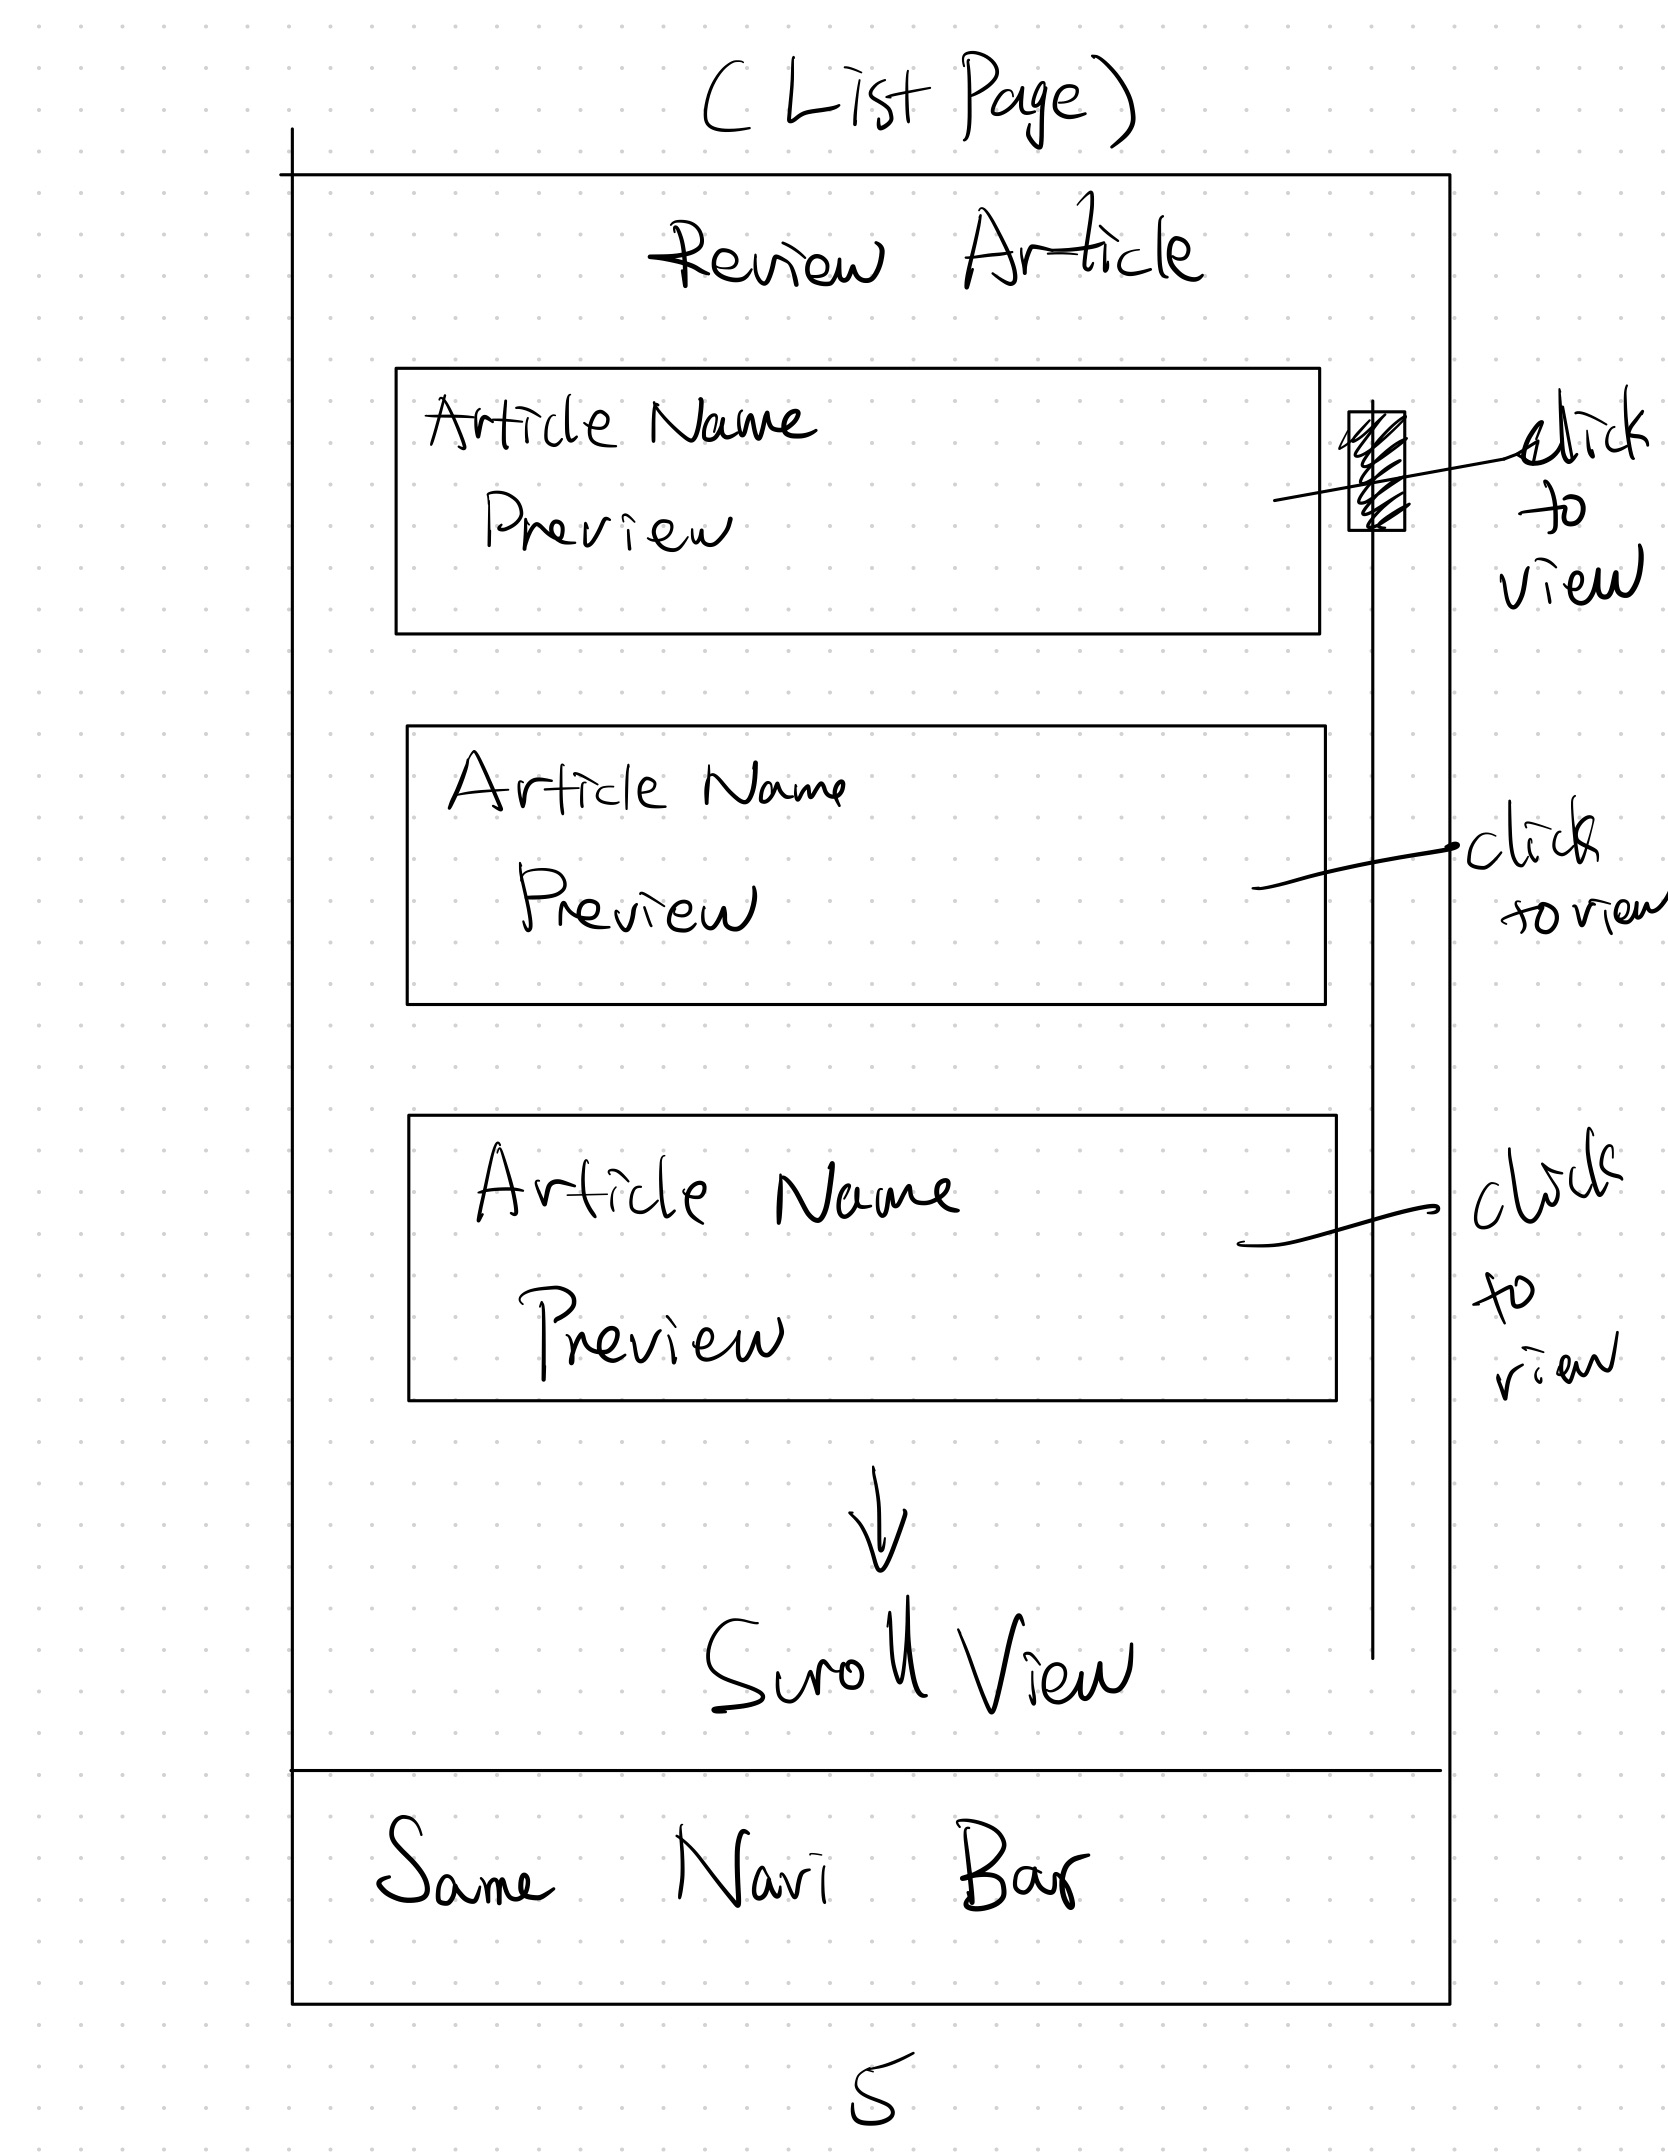 (List Page)
Review Article
Article Name
Preview
click
to
view
Article Name
Preview
click
to view
Article Name
Preview
click
to
view
Scroll View
Same Navi Bar
5